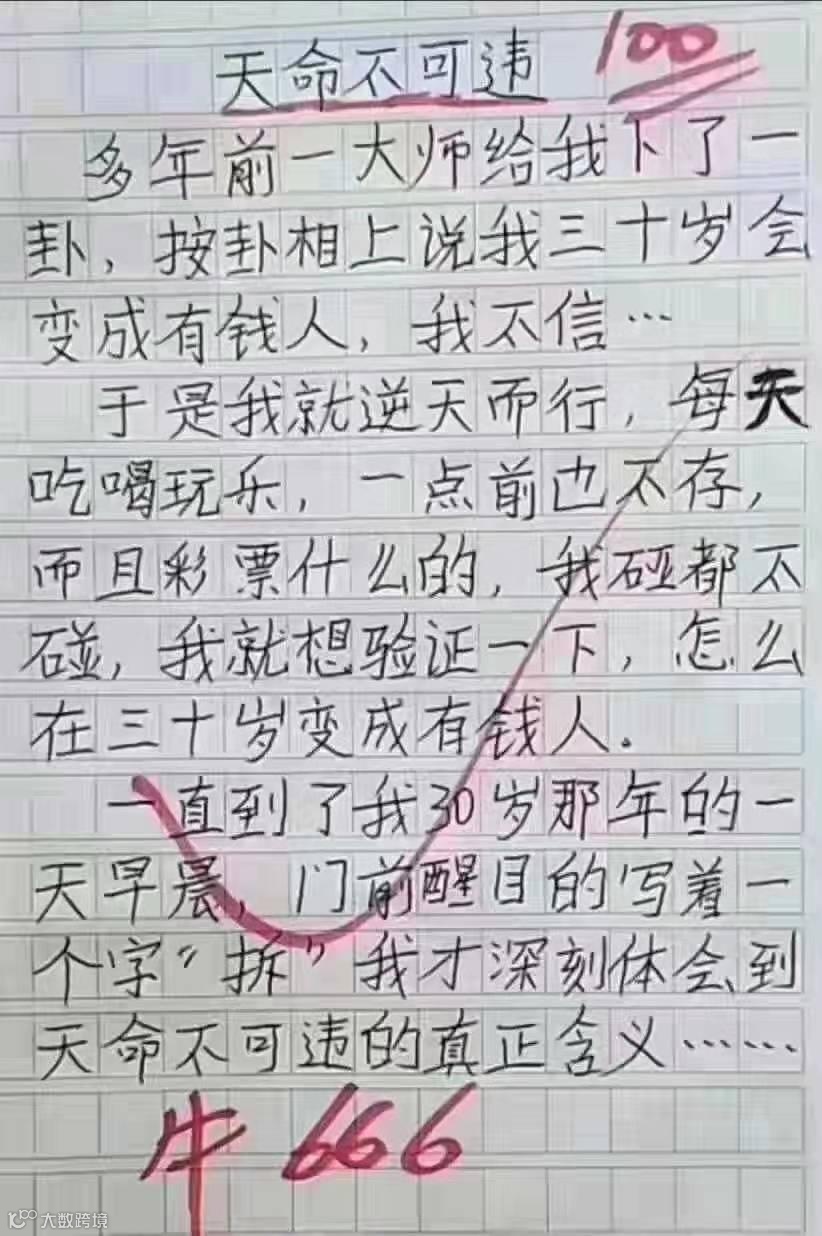 天命不可违 100
多年前一大师给我下了一
卦，按卦相上说我三十岁会
变成有钱人，我不信…
于是我就逆天而行，每天
吃喝玩乐，一点前也不存，
而且彩票什么的，我碰都不
碰，我就想验证一下，怎么
在三十岁变成有钱人。
一直到了我30岁那年的一
天早晨，门前醒目的写着一
个字“拆”我才深刻体会到
天命不可违的真正含义……
牛 666
大数跨境